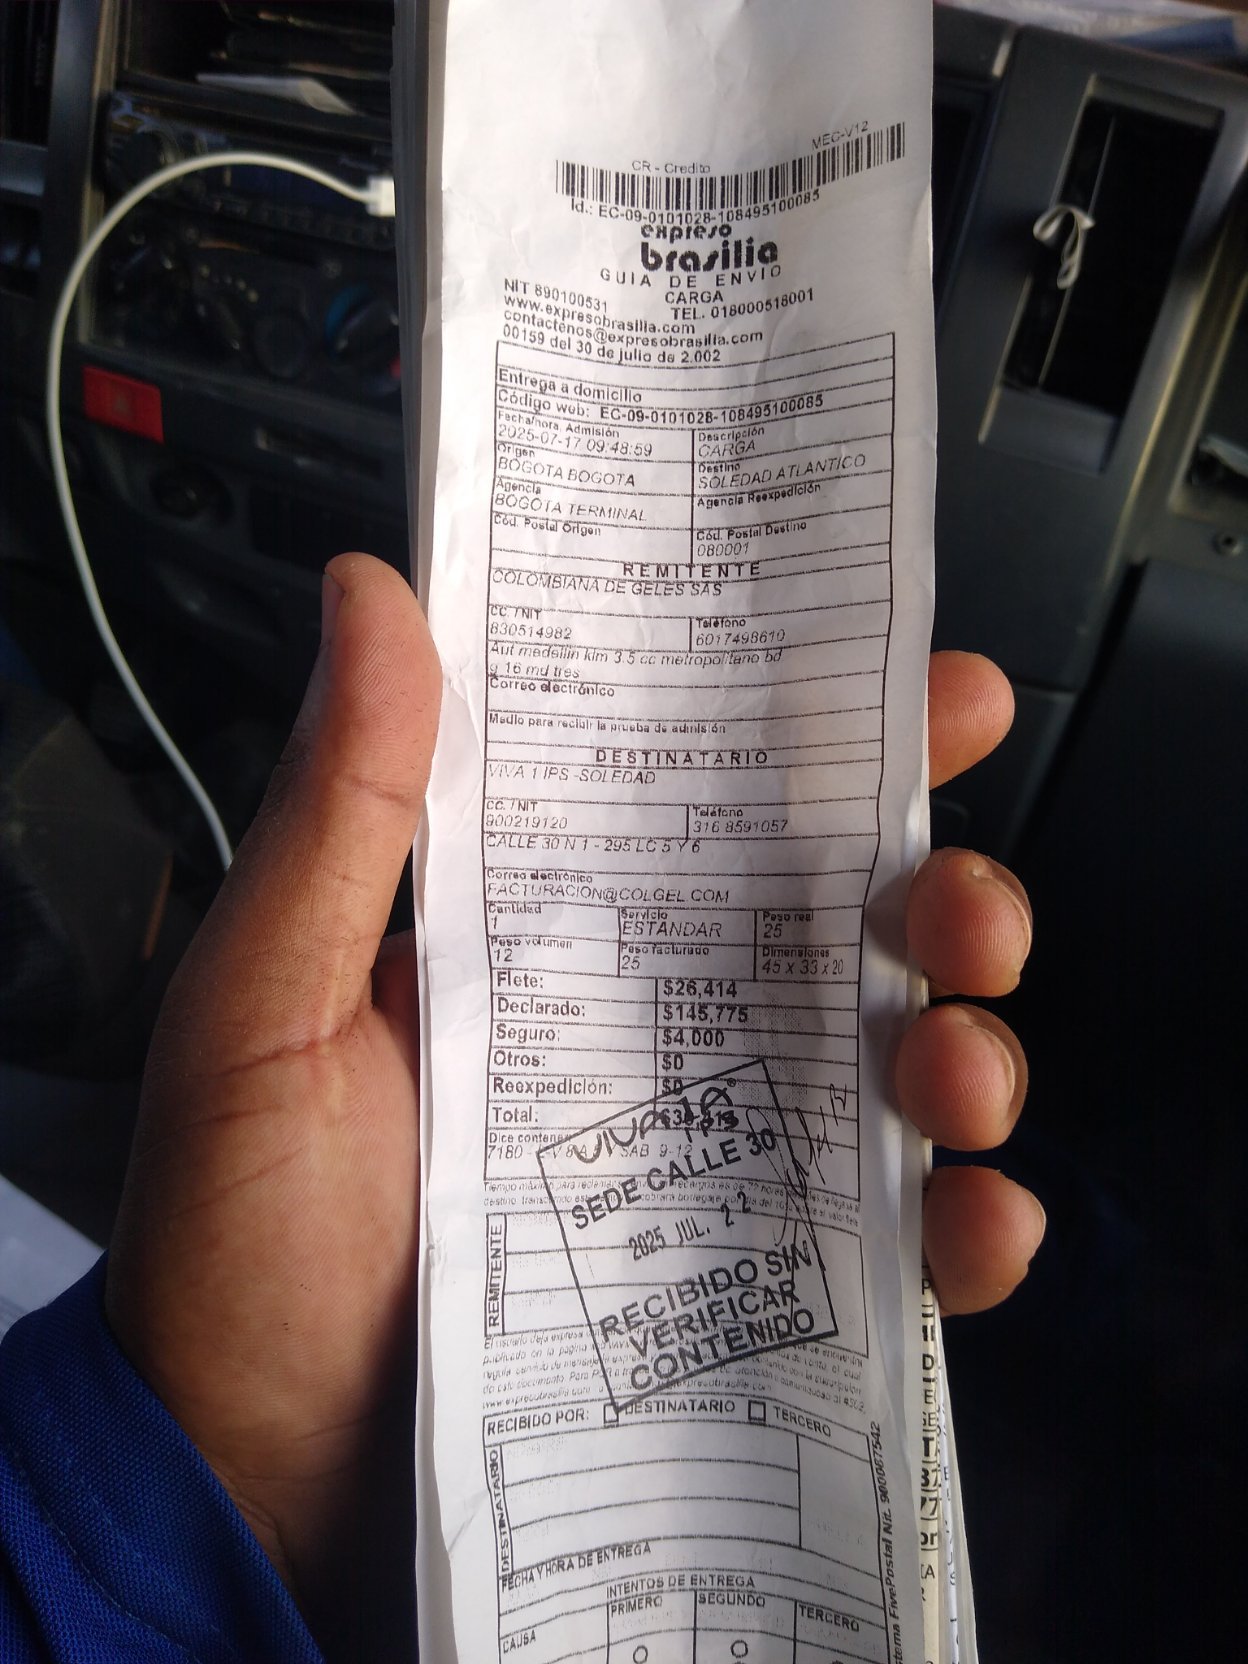 MEC-V12
CR - Credito
Id.: EC-09-0101028-108495100085
expreso
brasilia
GUIA DE ENVIO
NIT 890100531 CARGA
www.expresobrasilia.com TEL. 018000518001
contactenos@expresobrasilia.com
00159 del 30 de julio de 2.002
Entrega a domicilio
Código web: EC-09-0101028-108495100085
Fecha/hora Admisión Descripción
2025-07-17 09:48:59 CARGA
Origen Destino
BOGOTA BOGOTA SOLEDAD ATLANTICO
Agencia Agencia Reexpedición
BOGOTA TERMINAL
Cód. Postal Origen Cód. Postal Destino
080001
REMITENTE
COLOMBIANA DE GELES SAS
CC. / NIT Teléfono
830514982 6017498610
Aut medellin klm 3.5 cc metropolitano bd
g 16 md tres
Correo electrónico
Medio para recibir la prueba de admisión
DESTINATARIO
VIVA 1 IPS -SOLEDAD
CC. / NIT Teléfono
900219120 316 8591057
CALLE 30 N 1 - 295 LC 5 Y 6
Correo electrónico
FACTURACION@COLGEL.COM
Cantidad Servicio Peso real
1 ESTANDAR 25
Peso volumen Peso facturado Dimensiones
12 25 45 x 33 x 20
Flete: $26,414
Declarado: $145,775
Seguro: $4,000
Otros: $0
Reexpedición: $0
Total:
Dice contener
7180 SAB 9-12
VIVA 1A®
IPS
SEDE CALLE 30
2025 JUL. 22
RECIBIDO SIN
VERIFICAR
CONTENIDO
REMITENTE
RECIBIDO POR: DESTINATARIO TERCERO
DESTINATARIO
FECHA Y HORA DE ENTREGA
INTENTOS DE ENTREGA
PRIMERO SEGUNDO TERCERO
CAUSA
FivePostal Nit. 900087542